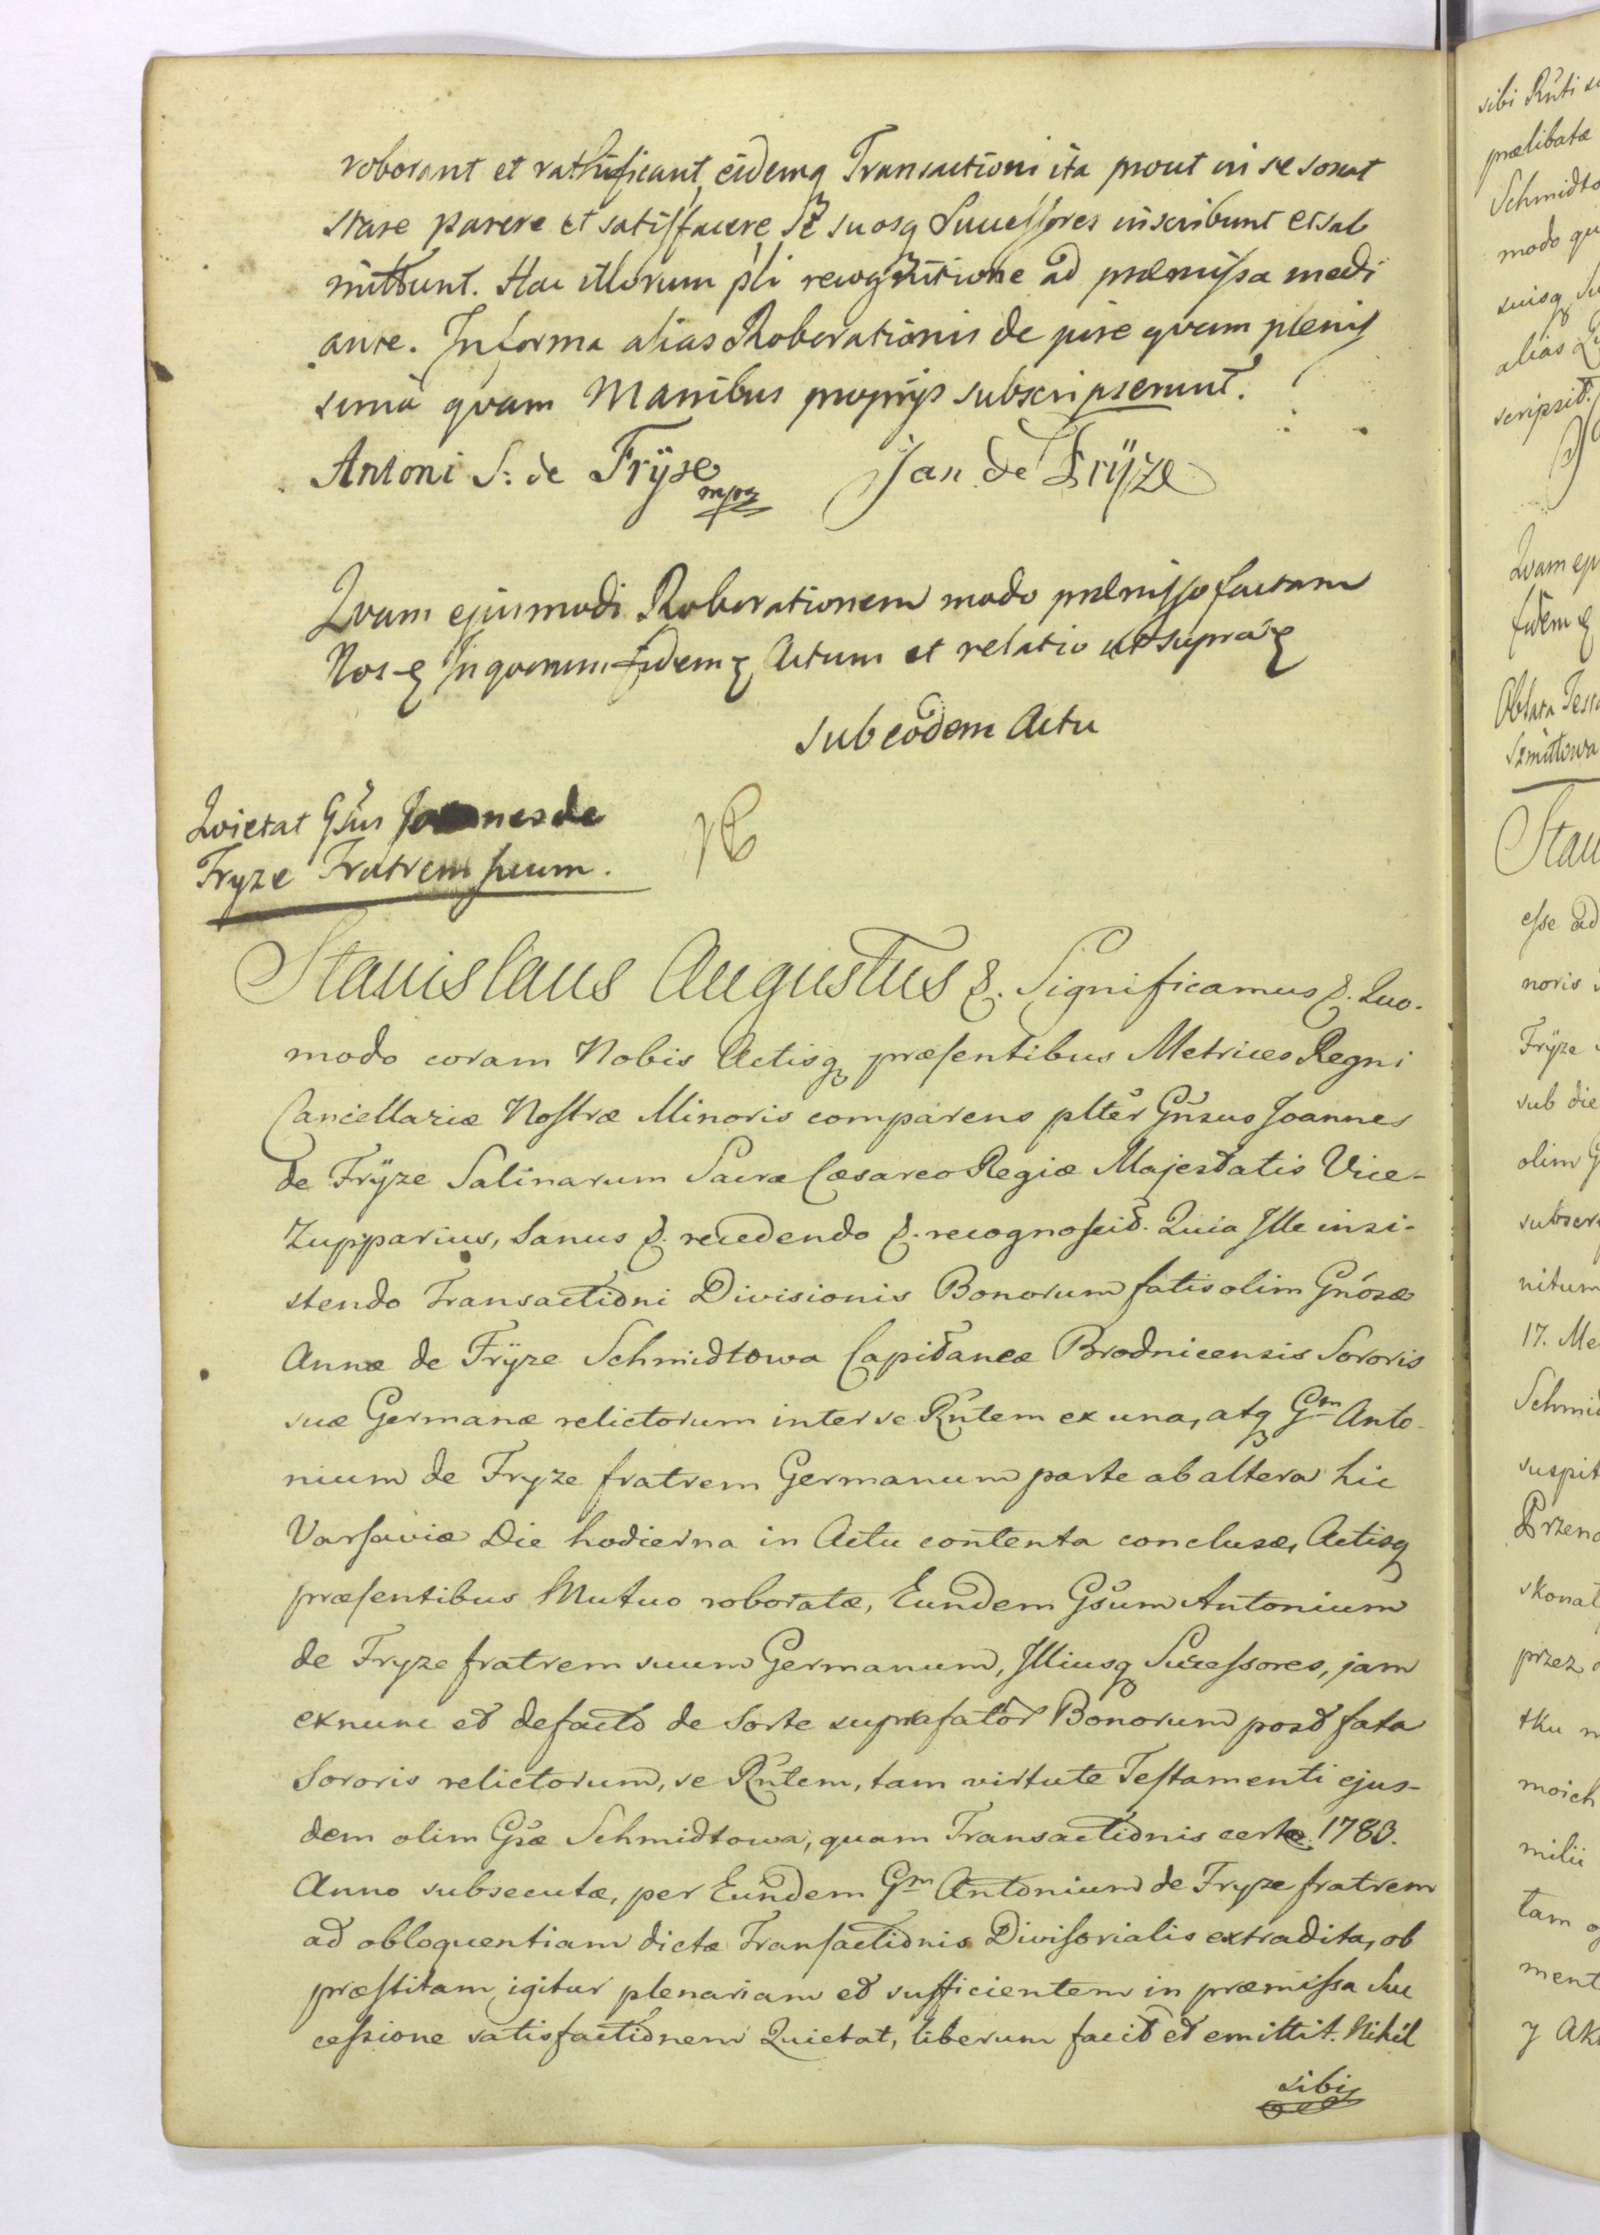 roborant et rathificant, eidemq Transactioni ita prout in se sonat
stare parere et satisfacere, se suosq Successores inscribunt et sub
mittunt. Hac illorum pli recognitione ad præmissa medi
ante. In forma alias Roborationis de jure quam plenis
sima quam Manibus proprijs subscripserunt.
Antoni S: de Frÿze Jan de Frÿze
mpp
Qvam ejusmodi Roborationem modo præmisso factam
Nos In quorum fidem Actum et relatio ut supra
sub eodem Actu
Qvietat Gsus Joannes de
Fryze Fratrem suum.
Stanislaus Augustus &. Significamus &. Quo-
modo coram Nobis Actisq præsentibus Metrices Regni
Cancellariæ Nostræ Minoris comparens plter Gnsus Joannes
de Frÿze Salinarum Sacræ Cæsareo Regiæ Majestatis Vice-
Zupparius, Sanus &. recedendo &. recognoscit. Quia Ille insi-
stendo Transactioni Divisionis Bonorum fatis olim Gnosæ
Annæ de Frÿze Schmidtowa Capitaneæ Brodnicensis Sororis
suæ Germanæ relictorum inter se Rntem ex una, atq Gm Anto-
nium de Fryze fratrem Germanum parte ab altera hic
Varsaviæ Die hodierna in Actu contenta conclusæ, Actisq
præsentibus Mutuo roboratæ, Eundem Gsum Antonium
de Fryze fratrem suum Germanum, Illiusq Sucessores, jam
exnunc et defacto de Sorte suprafator Bonorum post fata
Sororis relictorum, se Rntem, tam virtute Testamenti ejus-
dem olim Gsæ Schmidtowa, quam Transactionis certæ 1783.
Anno subsecutæ, per Eundem Gm Antonium de Fryze fratrem
ad obloquentiam dictæ Transactionis Divisorialis extradita, ob
præstitam igitur plenariam et sufficientem in præmissa Suc
cessione satisfactionem Quietat, liberum facit et emittit. Nihil
sibi
sibi Rnti
prælibatæ
Schmidto
modo
suisq
alias
scripsit.
Qvam
fidem
Oblata
Szmittowa
Stan
esse ad
noris
Frÿze
sub die
olim
subscr
nitum
17.
Schmid
suspit
Przen
skonat
przez
tku
moich
milii
tam
ment
y Ak